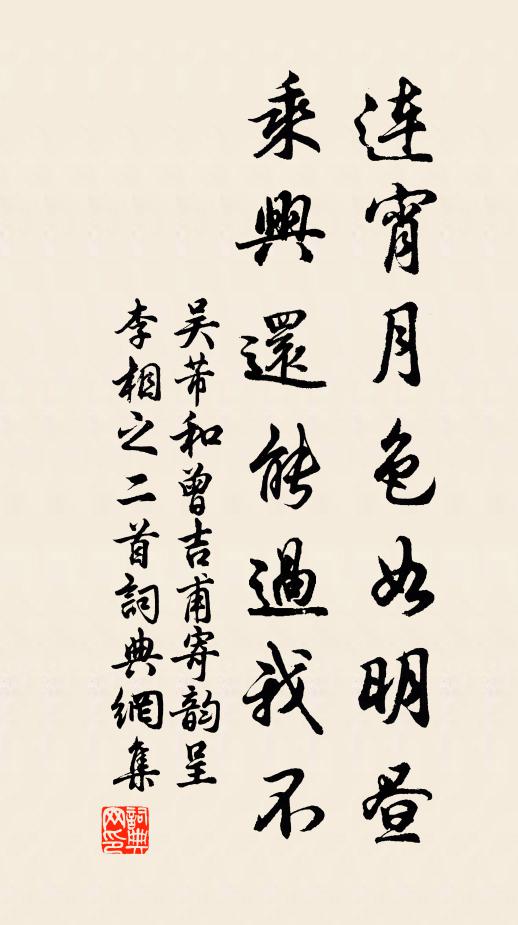 连宵月色如明昼
乘興還能過我不
吴芾和曾吉甫寄韵呈
李相之二首詞典網集
詞典
网印